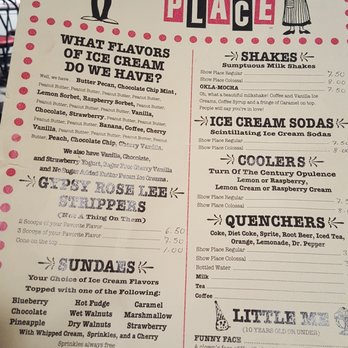 PLACE
WHAT FLAVORS
OF ICE CREAM
DO WE HAVE?
Well, we have Butter Pecan, Chocolate Chip Mint,
Peanut Butter, Peanut Butter, Peanut Butter, Peanut Butter,
Lemon Sorbet, Raspberry Sorbet, Peanut Butter,
Peanut Butter, Peanut Butter, Peanut Butter, Vanilla,
Chocolate, Peanut Butter, Peanut Butter, Peanut Butter,
Strawberry, Peanut Butter, Banana, Coffee, Cherry
Vanilla, Peanut Butter, Peanut Butter, Peanut Butter, Peanut
Butter, Peach, Chocolate Chip, Cherry Vanilla,
We also have Vanilla, Chocolate,
and Strawberry Yogurt, Sugar Free Cherry Vanilla
and No Sugar Added Butter Pecan Ice Creams.
GYPSY ROSE LEE
STRIPPERS
(Not A Thing On Them)
2 Scoops of Your Favorite Flavor 6.50
3 Scoops of Your Favorite Flavor 7.50
Cone on the top 1.00
SUNDAES
Your Choice of Ice Cream Flavors
Topped with one of the Following:
Blueberry Hot Fudge Caramel
Chocolate Wet Walnuts Marshmallow
Pineapple Dry Walnuts Strawberry
With Whipped Cream, Sprinkles, and a Cherry
Sprinkles always free
SHAKES
Sumptuous Milk Shakes
Show Place Regular 7.50
Show Place Colossal 8.00
OKLA-MOCHA 7.50
Oh, what a beautiful milkshake! Coffee and Vanilla Ice
Cream, Coffee Syrup and a fringe of Caramel on top.
People will say you're in love!
ICE CREAM SODAS
Scintillating Ice Cream Sodas
Show Place Regular 7.
Show Place Colossal 8.
COOLERS
Turn Of The Century Opulence
Lemon or Raspberry,
Lemon Cream or Raspberry Cream
QUENCHERS
Coke, Diet Coke, Sprite, Root Beer, Iced Tea,
Orange, Lemonade, Dr. Pepper
Show Place Regular 3.
Show Place Colossal
Bottled Water
Milk
Tea
Coffee
LITTLE ME
(10 YEARS OLD OR UNDER)
FUNNY FACE